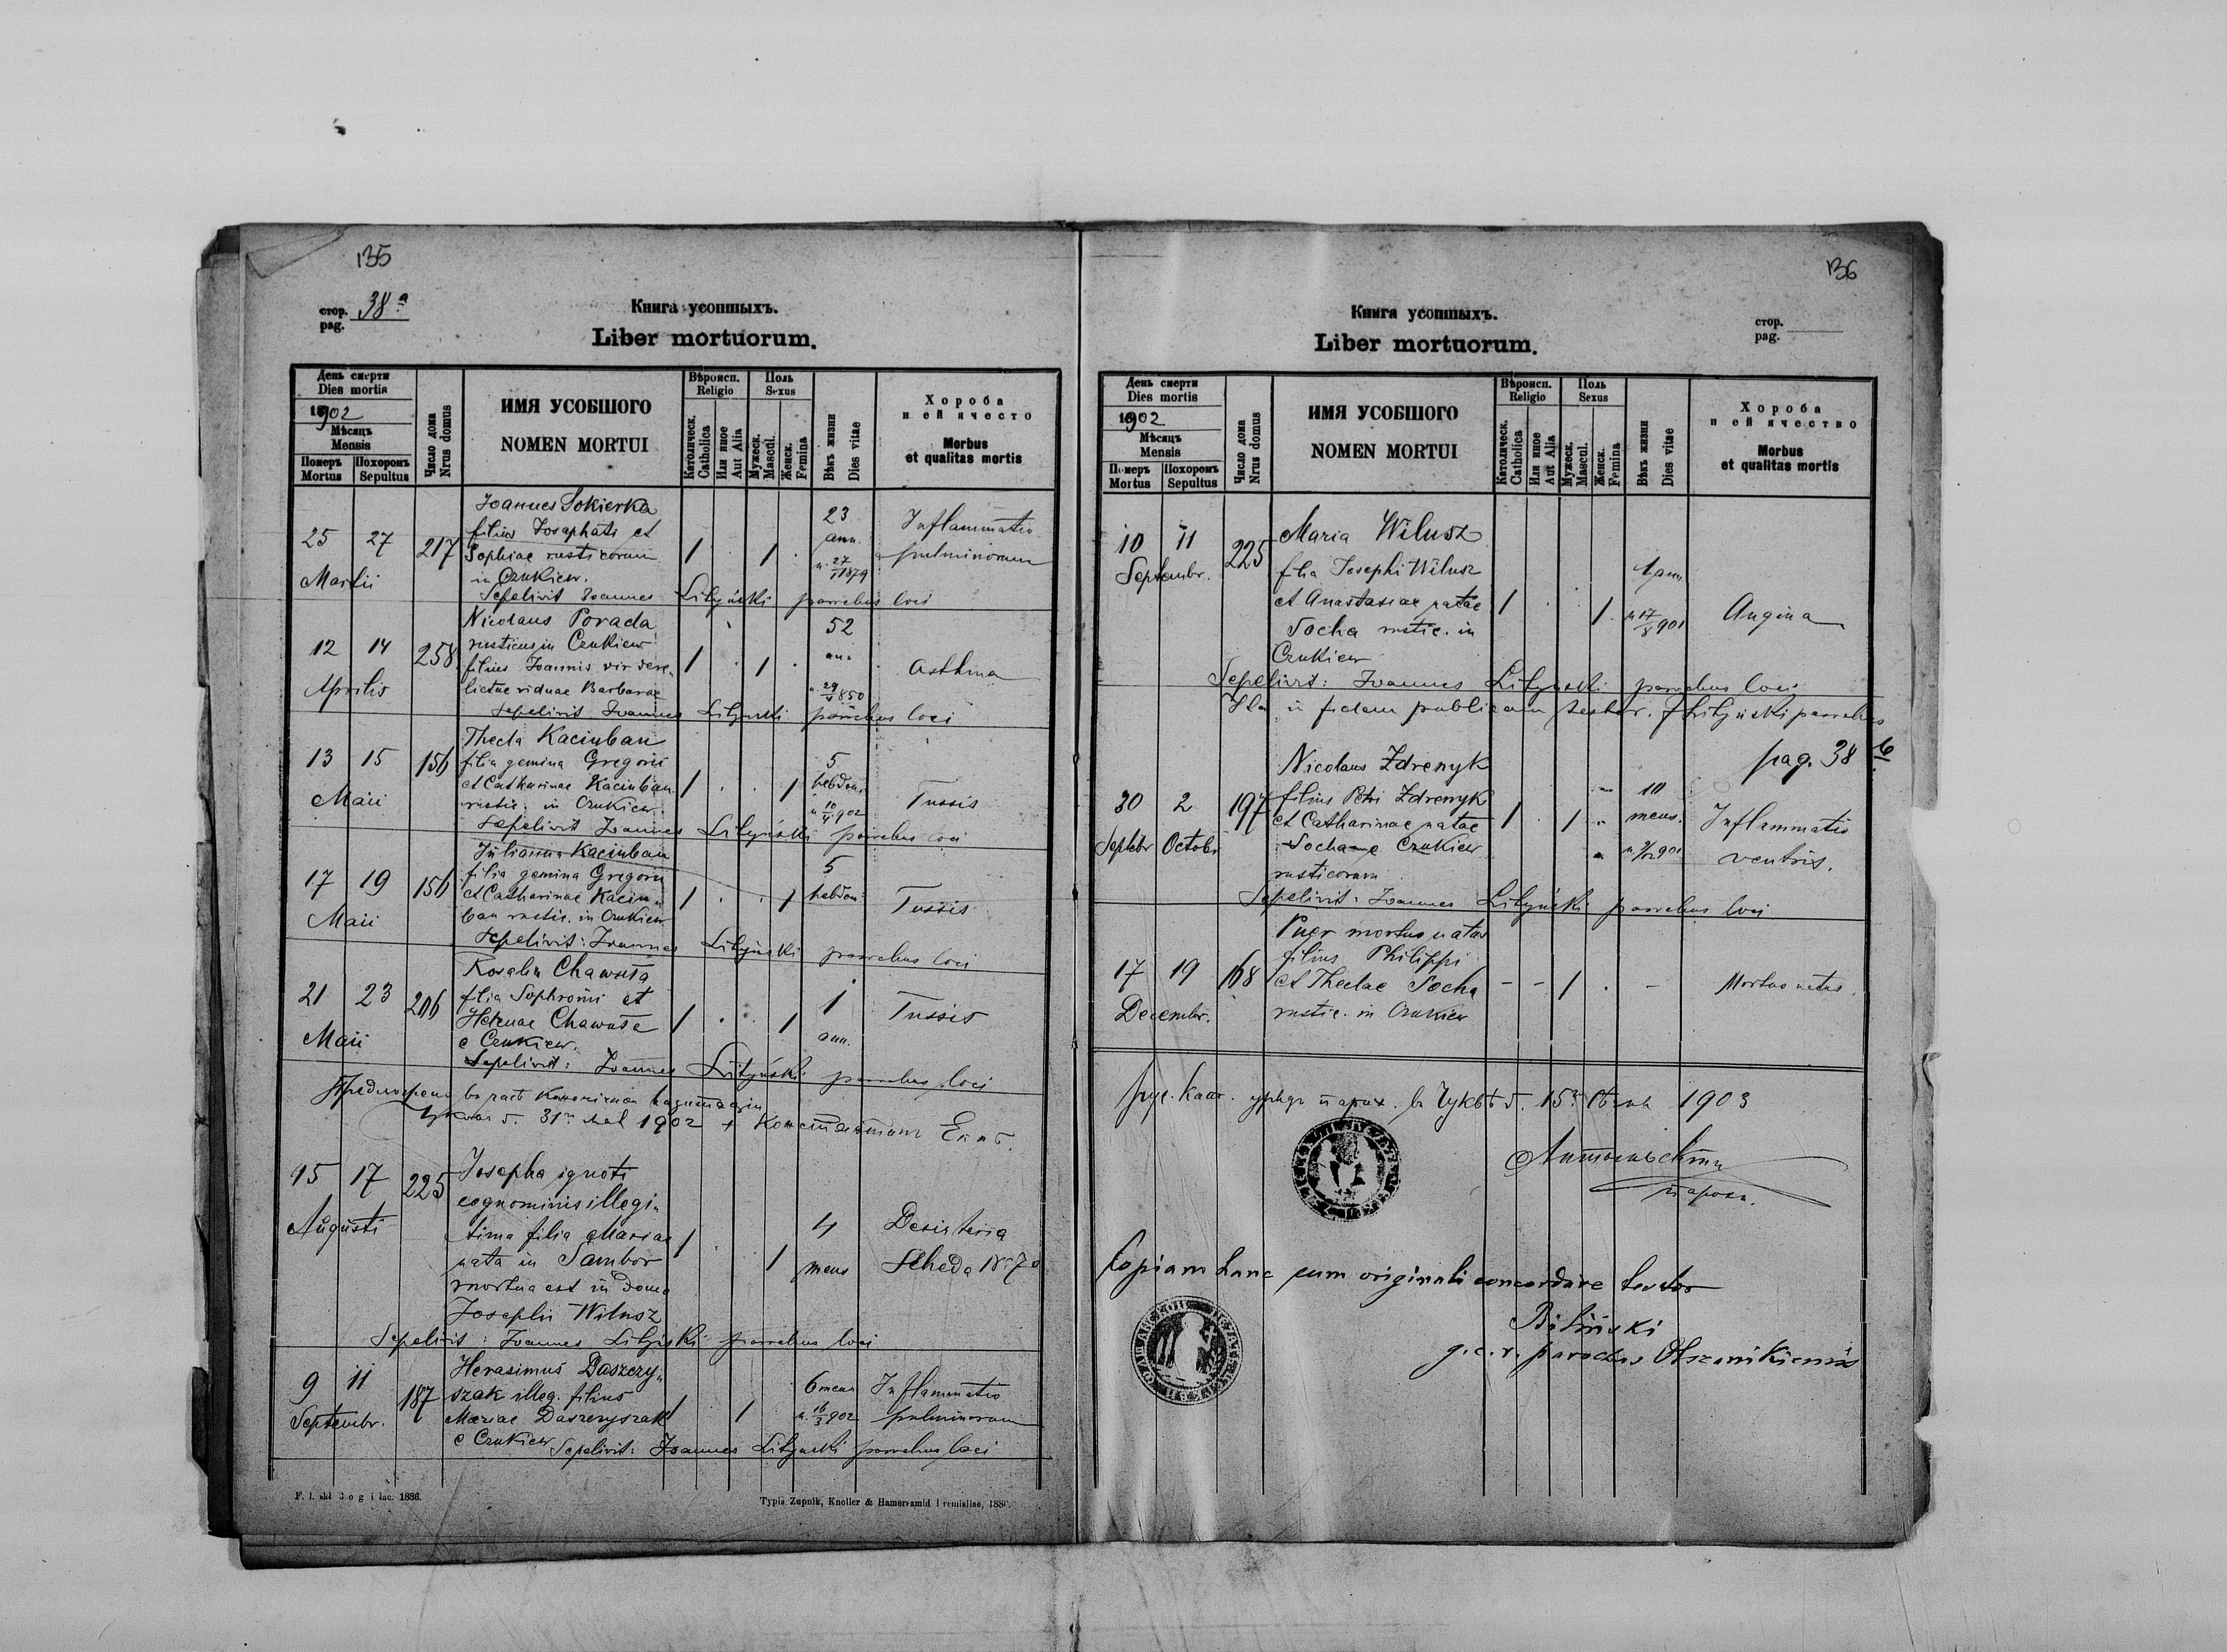 135
стор. pag. 38 a
Книга усопшыхъ.
Liber mortuorum.
День смерти
Dies mortis
1902
Мѣсяцъ
Mensis
Померъ Mortus
Похоронъ Sepultus
Число дома
Nrus domus
ИМЯ УСОБШОГО
NOMEN MORTUI
Вѣроисп.
Religio
Католическ.
Catholica
Или иное
Aut Alia
Полъ
Sexus
Мужеск.
Mascul.
Женск.
Femina
Вѣкъ жизни
Dies vitae
Хороба
и ей ячесто
Morbus
et qualitas mortis
25 27 Martii 217
Joannes Sokierka
filius Josaphati et
Sophiae rusticorum
in Czukiew.
1 . 1 .
23 ann.
n. 27/1 1879
Inflammatio
pulminorum
Sepelivit Joannes Lityński parochus loci
12 14 Aprilis 258
Nicolaus Porada
rusticus in Czukiew
filius Joannis vir dere-
lictae viduae Barbarae
1 . 1 .
52
ann
850
Asthma
Sepelivit Joannes Lityński parochus loci
13 15 Maii 156
Thecla Kaciuban
filia gemina Gregorii
et Catharinae Kaciuban
rustic. in Czukiew.
1 . . 1
5
hebdom.
n 10/4 902
Tussis
Sepelivit Joannes Lityński parochus loci
17 19 Maii 156
Julianna Kaciuban
filia gemina Gregorii
et Catharinae Kaciu-
ban rustic. in Czukiew
1 . . 1
5
hebdom.
Tussis
Sepelivit: Joannes Lityński parochus loci
21 23 Maii 206
Rosalia Chawuła
filia Sophronii et
Helenae Chawuła
e Czukiew.
1 . . 1
1
ann.
Tussis
Sepelivit: Joannes Lityński parochus loci
31 1902 + Константинъ Епп
15 17 Augusti 225
Josepha ignoti
cognominis illegi-
tima filia Mariae
nata in Sambor
mortua est in domo
Josephi Wilusz
1 . . 1
4
mens
Desinteria
Scheda Nr 70
Sepelivit: Joannes Lityński parochus loci
9 11 Septembr. 187
Herasimus Daszczy-
szak illeg. filius
Mariae Daszczyszak
e Czukiew
1 . 1
6 mens
n. 16/3 902
Inflammatio
pulminorum
Sepelivit: Joannes Lityński parochus loci
Typis Żupnik, Knoller & Hamerszmid
136
Книга усопшыхъ.
Liber mortuorum.
стор.
pag.
День смерти
Dies mortis
1902
Мѣсяцъ
Mensis
Померъ Mortus
Похоронъ Sepultus
Число дома
Nrus domus
ИМЯ УСОБШОГО
NOMEN MORTUI
Вѣроисп.
Religio
Католическ.
Catholica
Или иное
Aut Alia
Полъ
Sexus
Мужеск.
Mascul.
Женск.
Femina
Вѣкъ жизни
Dies vitae
Хороба
и ей ячество
Morbus
et qualitas mortis
10 11 Septembr. 225
Maria Wilusz
filia Josephi Wilusz
et Anastasiae natae
Socha rustic. in
Czukiew
1 . . 1
1 ann
n 17/8 901
Angina
Sepelivit: Joannes Lityński parochus loci
in fidem publicam testor. J Lityński parochus
pag. 38 b
30 2 Septebr Octobr 197
Nicolaus Zdrenyk
filius Petri Zdrenyk
et Catharinae natae
Socha e Czukiew
rusticorum
1 . 1 .
10
mens.
Inflammatio
ventris.
Sepelivit: Joannes Lityński parochus loci
17 19 Decembr. 168
Puer mortuo natus
filius Philippi
et Theclae Socha
rustic. in Czukiew
- - 1 . -
Mortuo natus.
15 1903
парох.
Copiam hanc cum originali concordare testor
Biliński
g. c. r. parochus Olszanikiensis